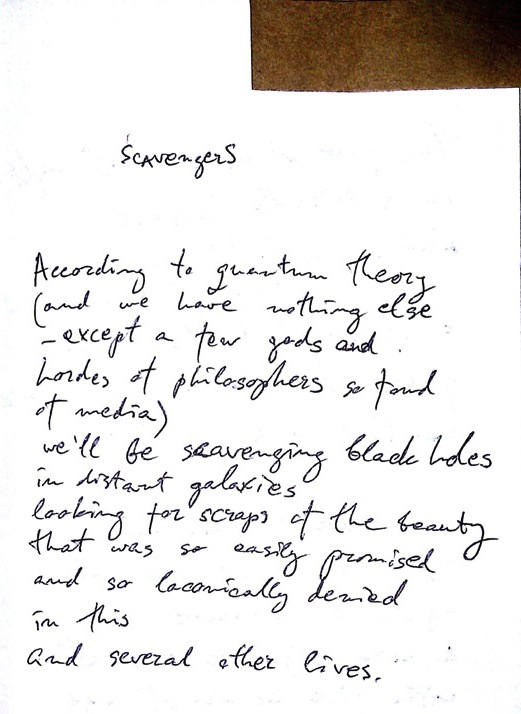 Scavengers
According to quantum theory
(and we have nothing else
- except a few gods and
hordes of philosophers so fond
of media)
we'll be scavenging black holes
in distant galaxies
looking for scraps of the beauty
that was so easily promised
and so laconically denied
in this
and several other lives.